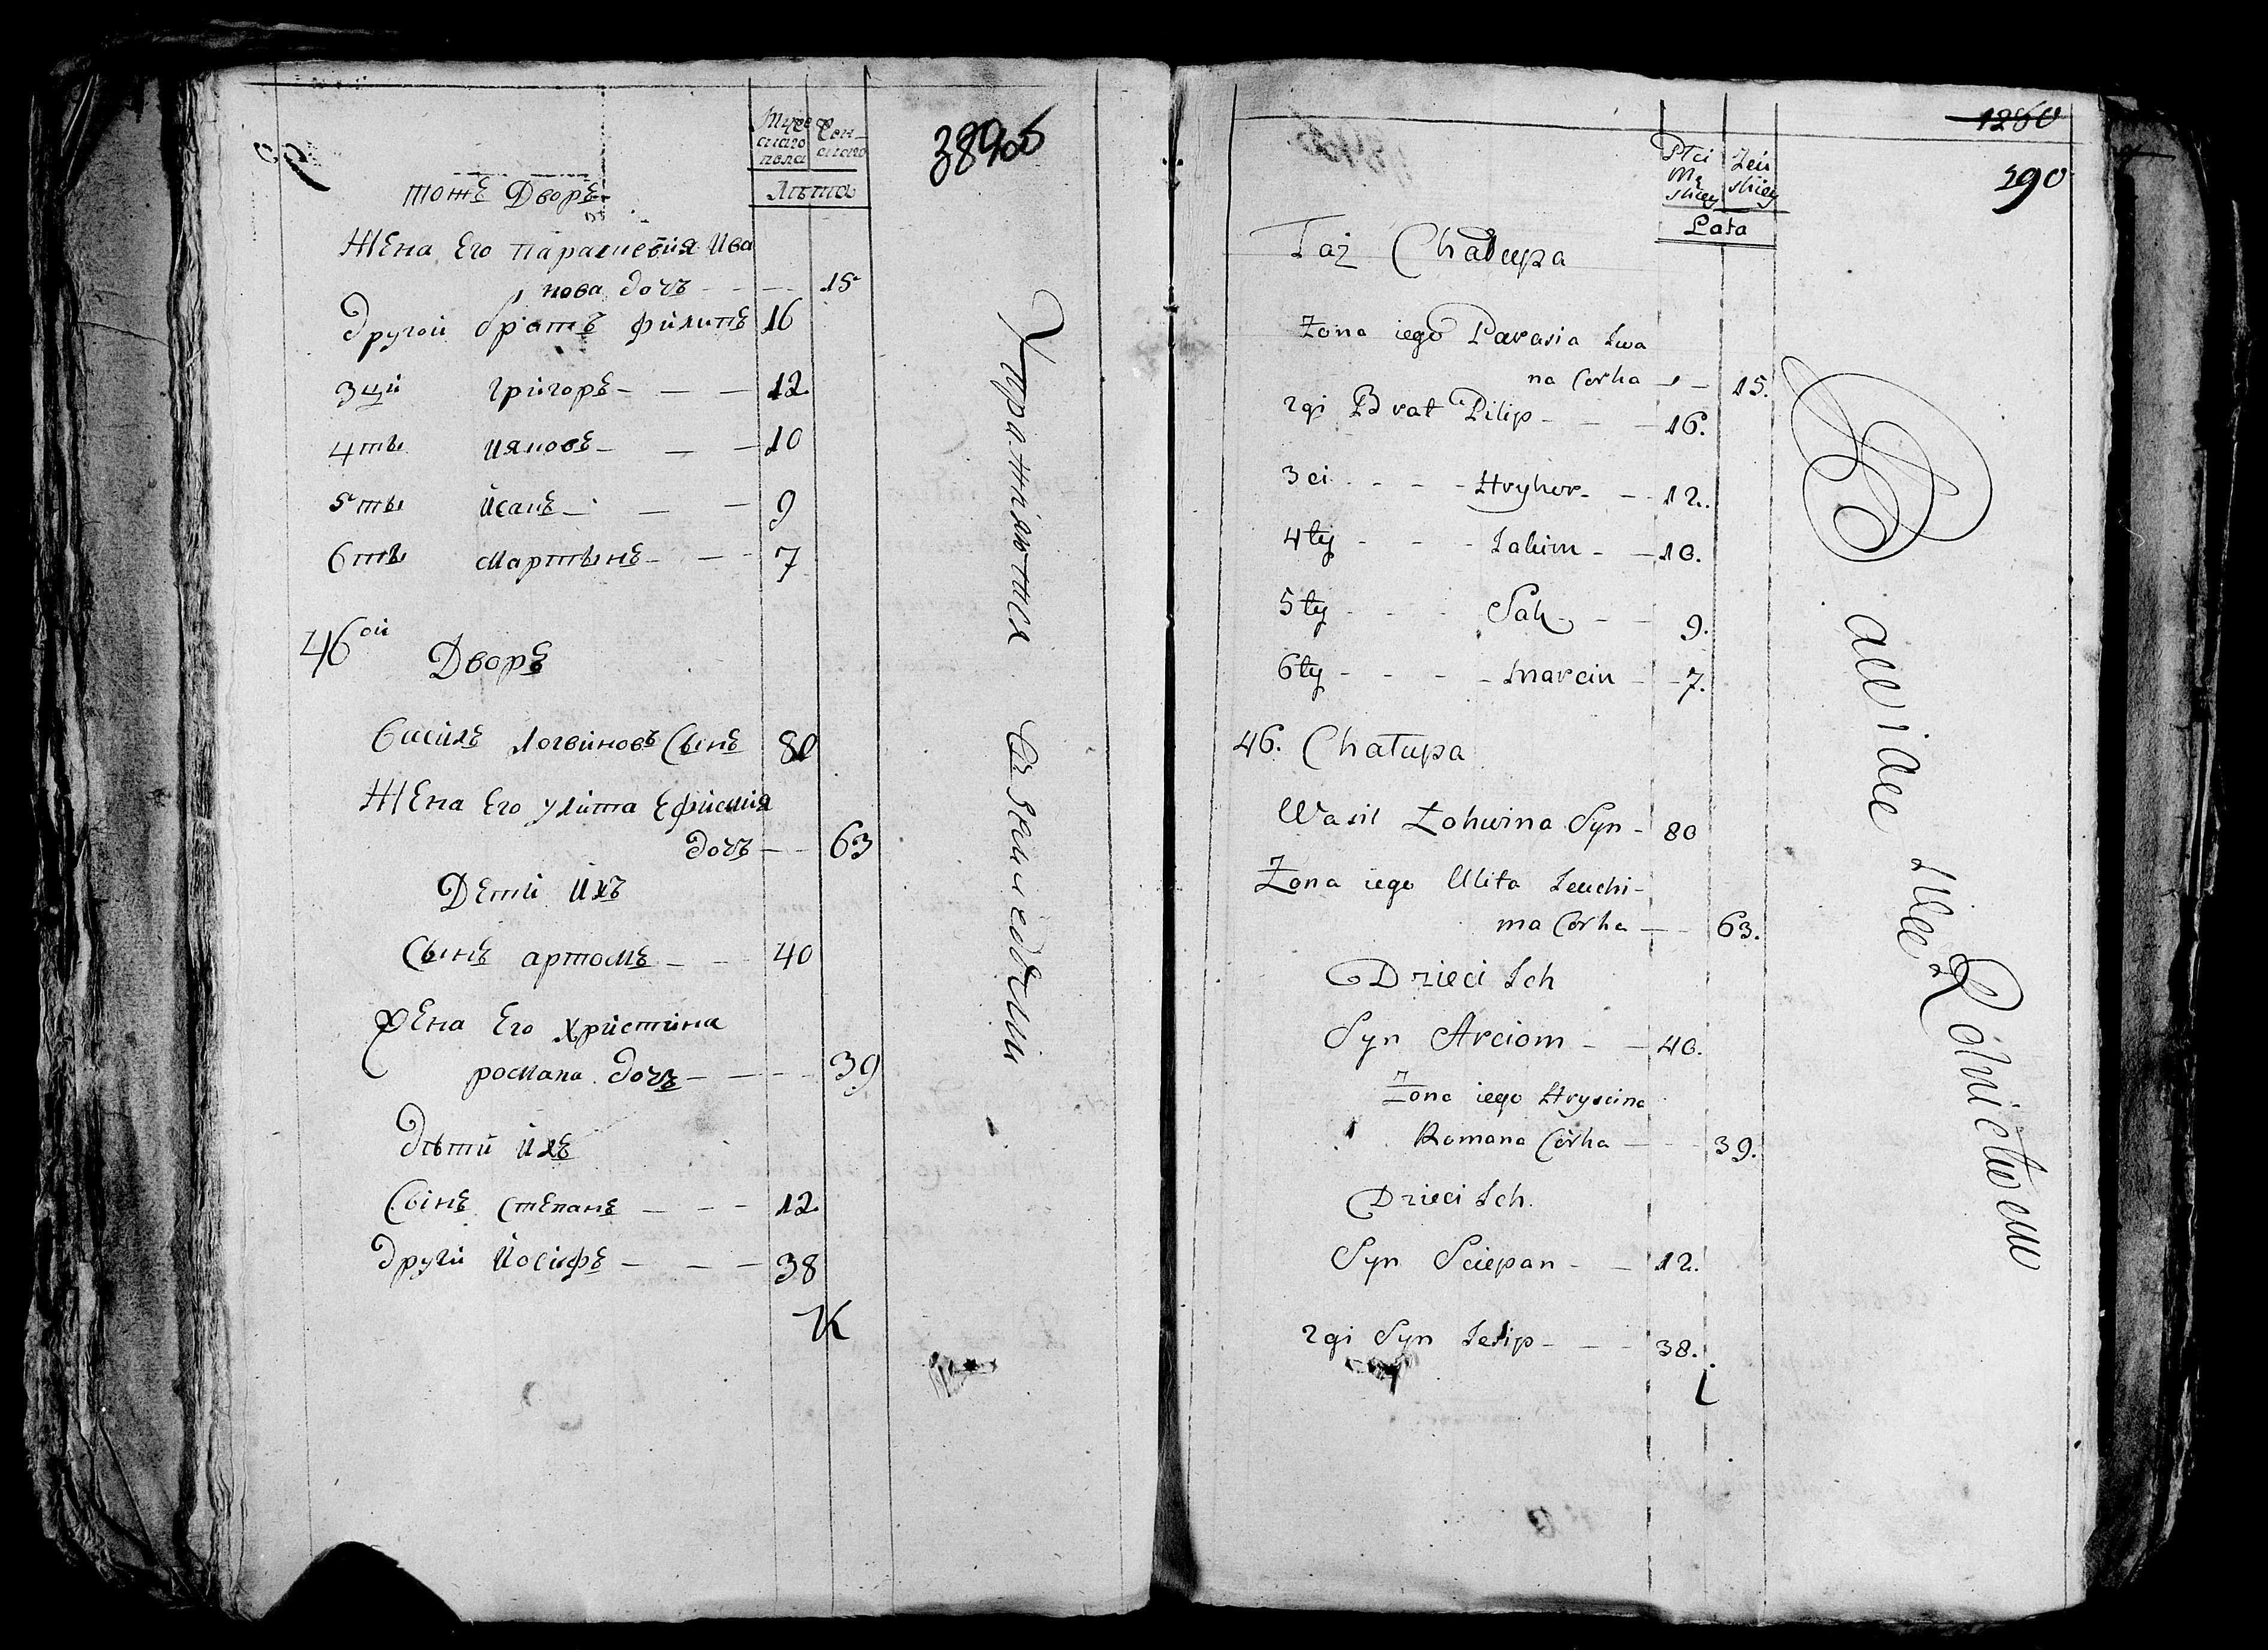 38906
мужескаго пола
женскаго
Лѣта
тотъ Дворъ
Жена Его парасковия Ива
нова дочъ - - - 15
Другой братъ филипъ 16
3ций григоръ - - - 12
4ты ияковъ - - - 10
5ты исакъ - - - 9
6ты мартынъ - - - 7
46ой Дворъ
Василь логвиновъ Сынъ 80
Жена Его улита Ефимия
дочъ - - 63
Дети ихъ
Сынъ артомъ - - - 40
Жена Его христина
романа дочъ - - - 39
дѣти ихъ
Сынъ степанъ - - - 12
други иосифъ - - - 38
1280
290
Płci
Mę
skiey
Żeń
skiey
Lata
Taż Chałupa
Żona iego Parasia Iwa
na Corka - - 15.
2gi Brat Pilip - - - 16.
3ci - - - Hryhor - - 12.
4ty - - - Jakim - - 10.
5ty - - - Sak - - 9.
6ty - - - Marcin - - 7.
46. Chałupa
Wasil Łohwina Syn - 80
Żona iego Ulita Jeuchi-
ma Corka - - 63.
Dzieci Ich
Syn Arciom - - 40.
Żona iego Hryscina
Romana Córka - - - 39.
Dzieci Ich.
Syn Sciepan - - 12.
2gi Syn Jesip - - - 38.